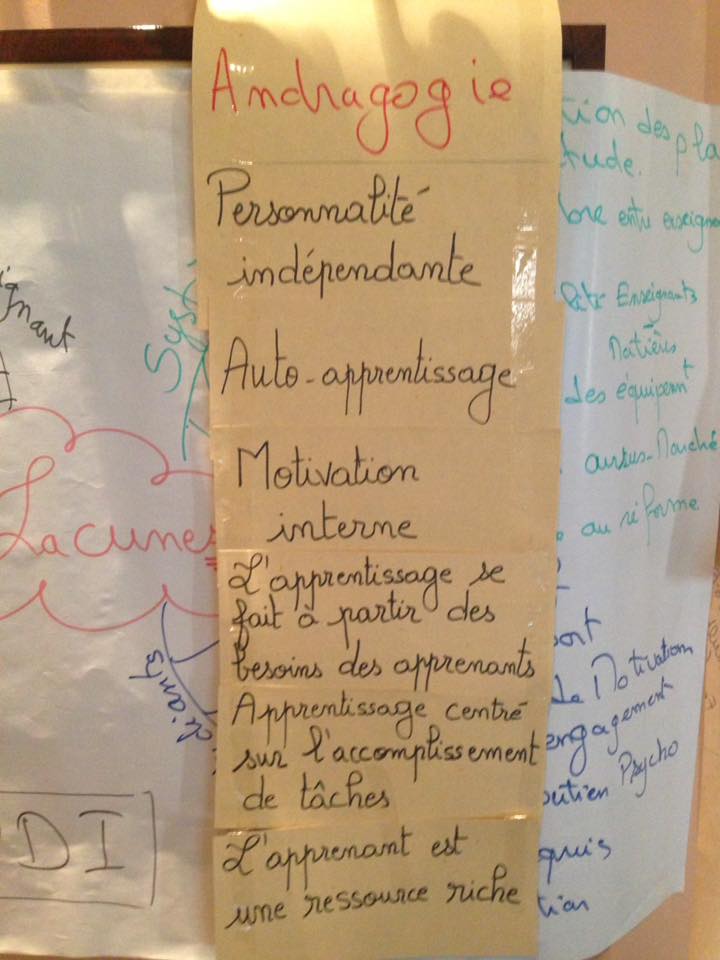 Andragogie
Personnalité
indépendante
Auto-apprentissage
Motivation
interne
L'apprentissage se
fait à partir des
besoins des apprenants
Apprentissage centré
sur l'accomplissement
de tâches
L'apprenant est
une ressource riche
Syst
Lacunes
DI
tion des pla
tude.
entre enseigna
Enseignants
Matières
des équipemt
cursus-Marché
au réforme
La Motivation
engagement
outien Psycho
quis
tion